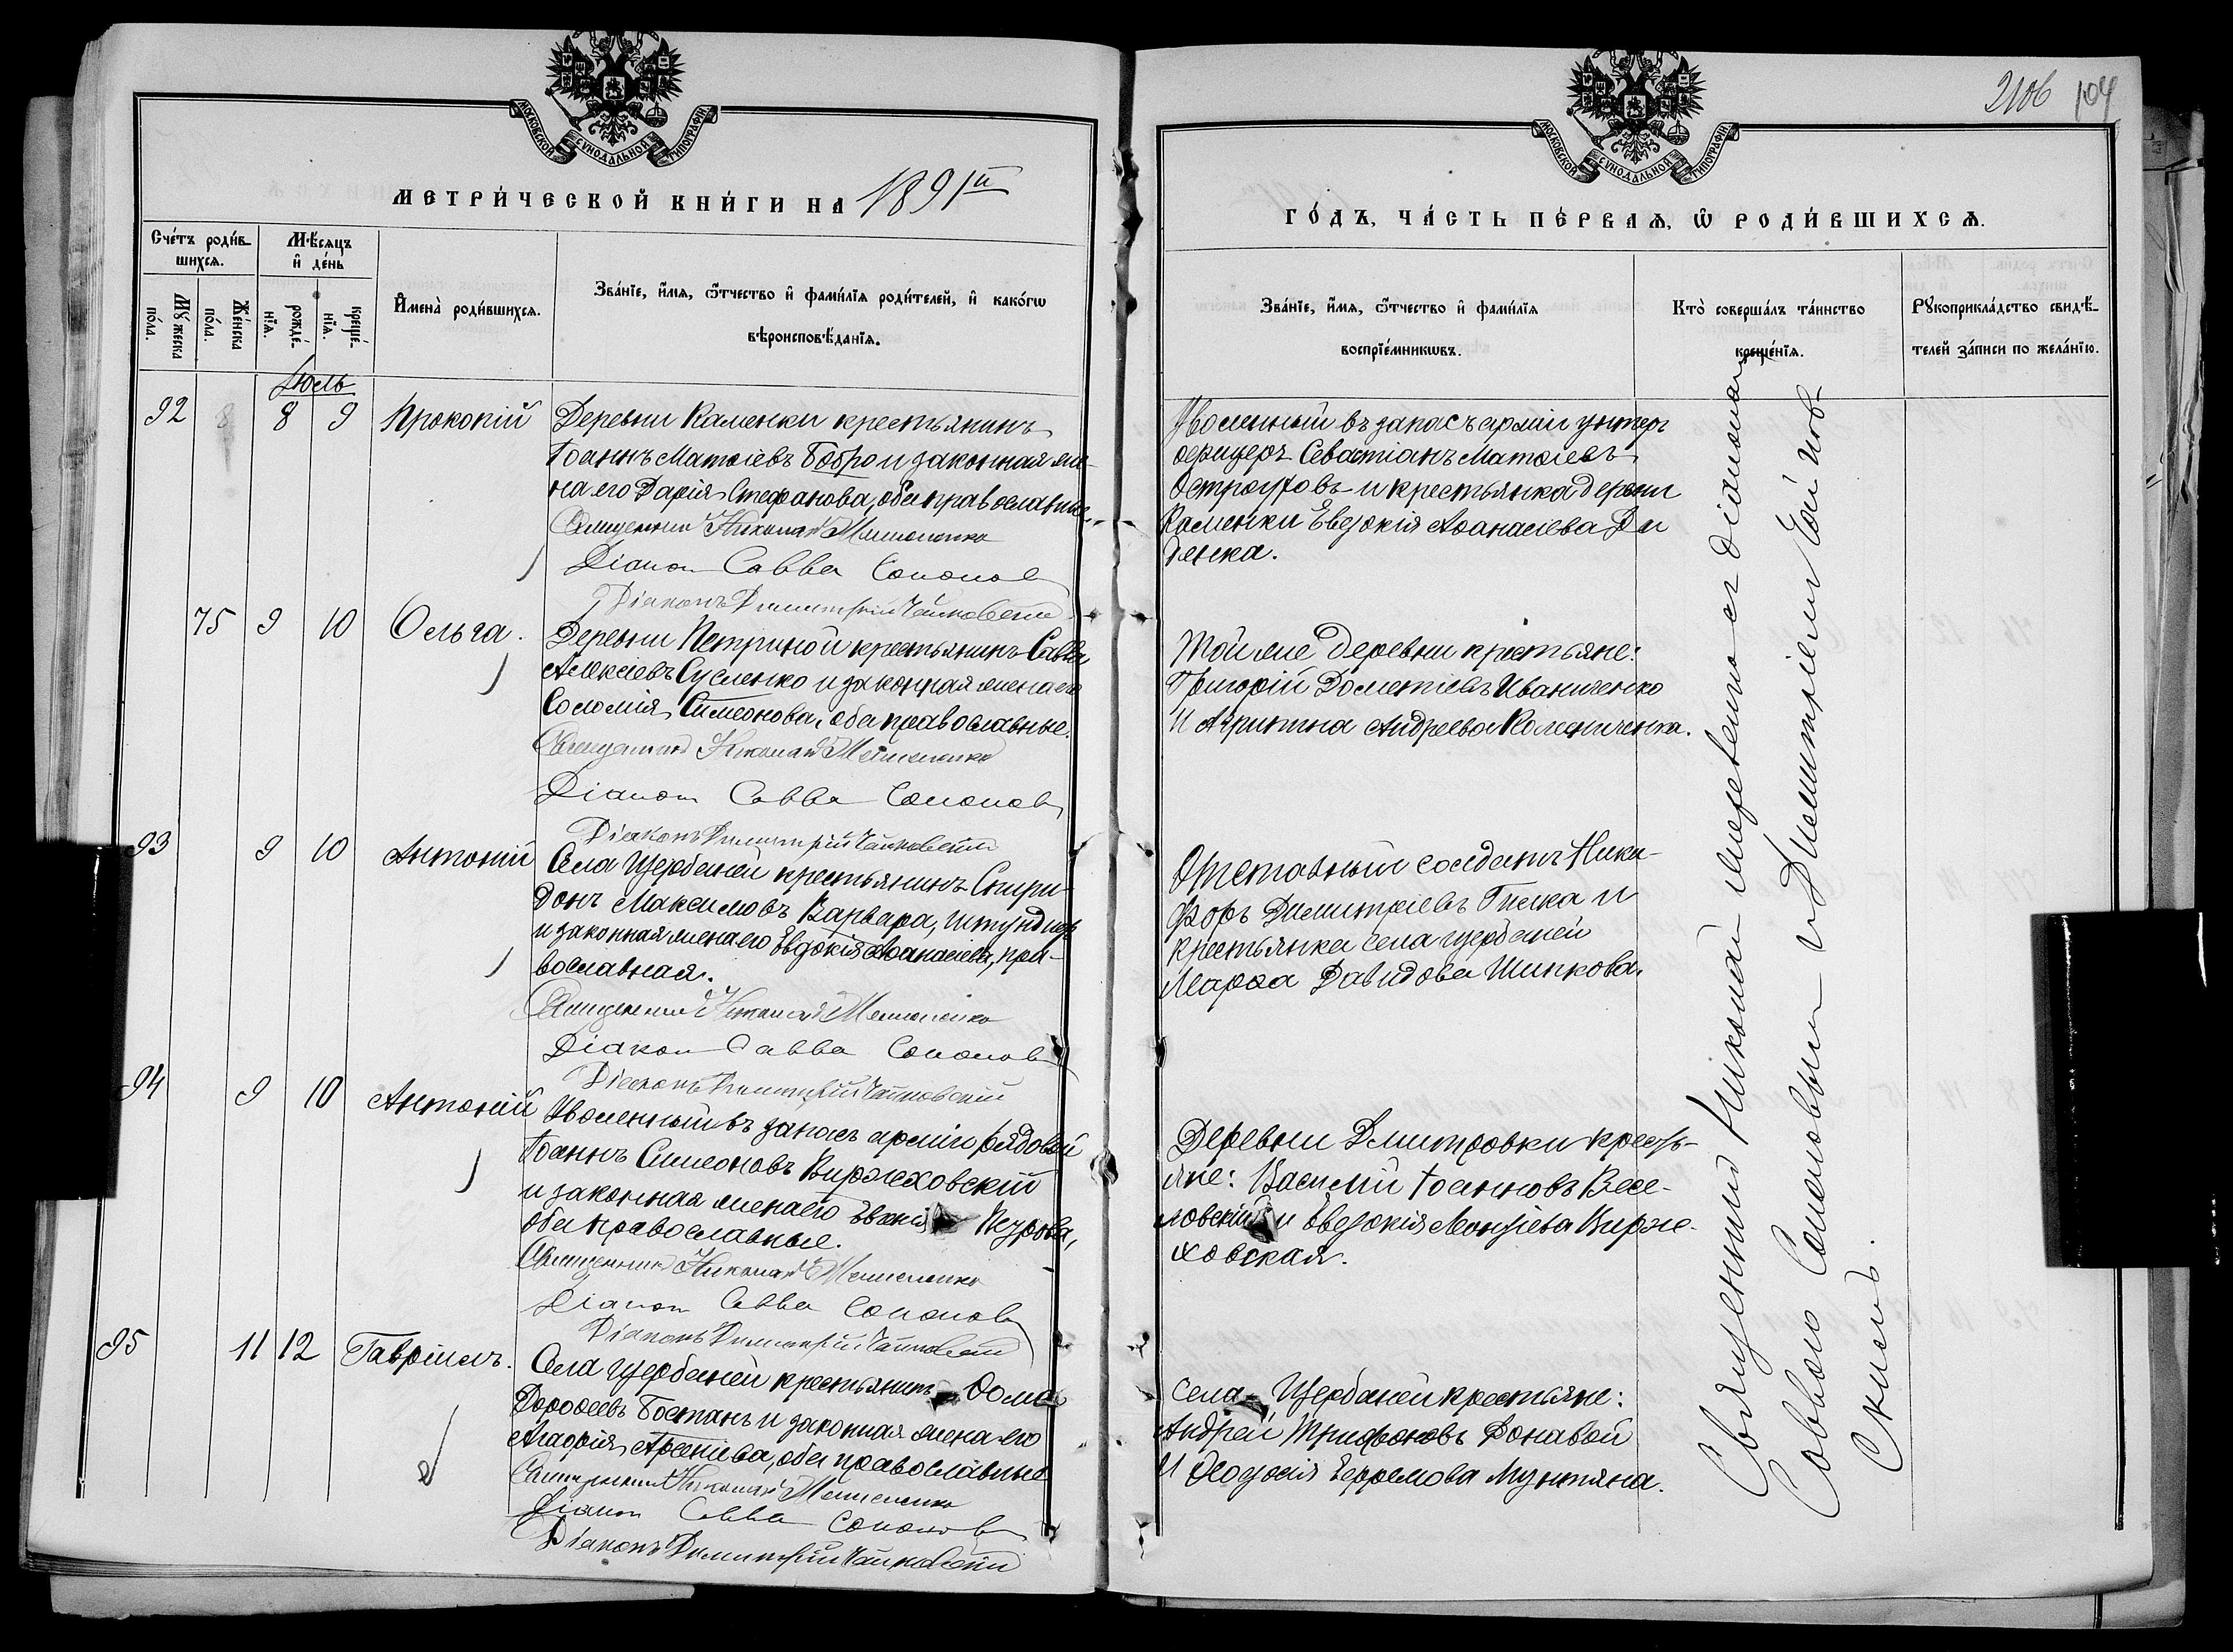 МОСКОВСКОЙ СУНОДАЛЬНОЙ ТИПОГРАФІИ
МЕТРИ́ЧЕСКОЙ КНИ́ГИ НА 1891й
Сче́тъ роди́в-
шихсѧ.
Мѣ́сѧцъ
и҆ де́нь
Мꙋ́жеска
по́ла.
Же́нска
по́ла.
рожде́-
нїѧ.
креще́-
нїѧ.
И҆мена̀ роди́вшихсѧ.
Зва́нїе, и҆́мѧ, ѻ҆́тчество и҆ фами́лїѧ роди́телей, и҆ како́гѡ
вѣроисповѣ́данїѧ.
Іюль
92 8 9 Прокопій
Деревни Каменки крестьянинъ
Іоаннъ Матѳіевъ Бобро и законная же-
на его Дарія Стефанова, оба православные.
Священникъ Николай
Діаконъ Савва Сононовъ
Діаконъ Димитрій Чайковскій
75 9 10 Ольга.
Деревни Петриной крестьянинъ Савва
Алексіевъ Сусленко и законная жена его
Соломія Симеонова, оба православные.
Священникъ Николай
Діаконъ Савва Сононовъ
Діаконъ Димитрій Чайковскій
93 9 10 Антоній
Села Щербаней крестьянинъ Спири-
донъ Максимовъ Варвара, штундистъ
и законная жена его Евдокія Аѳанасіева, пра-
вославная.
Священникъ Николай
Діаконъ Савва Сононовъ
Діаконъ Димитрій Чайковскій
94 9 10 Антоній
Уволенный въ запасъ арміи рядовой
Іоаннъ Симеоновъ Виржеховскій
и законная жена его
оба православные.
Священникъ Николай
Діаконъ Савва Сононовъ
Діаконъ Димитрій Чайковскій
95 11 12 Гавріилъ.
Села Щербаней крестьянинъ Ѳома
Дороѳеевъ Бостанъ и законная жена его
Агафія Арсеніева, оба православные
Священникъ Николай
Діаконъ Савва Сононовъ
Діаконъ Димитрій Чайковскій
2106 104
МОСКОВСКОЙ СУНОДАЛЬНОЙ ТИПОГРАФІИ
ГО́ДЪ, ЧА́СТЬ ПЕ́РВАѦ, Ѡ҆ РОДИ́ВШИХСѦ.
Зва́нїе, и҆́мѧ, ѻ҆́тчество и҆ фами́лїѧ
воспрїе́мникѡвъ.
Кто̀ соверша́лъ та́инство
креще́нїѧ.
Рꙋкоприкла́дство свидѣ́-
телей за́писи по жела́нїю.
Уволенный въ запасъ арміи унтеръ
офицеръ Севастіанъ Матѳіевъ
Остроуховъ и крестьянка деревни
Каменки Евдокія Аѳанасіева Ди
денка.
Той же деревни крестьяне:
Григорій Дометіевъ Иваниченко
и Агрипина Андреева Колесниченка.
Отставный солдатъ Ники-
форъ Димитріевъ Гиска и
крестьянка села Щербаней
Марѳа Давидова Шипкова.
Деревни Дмитровки кресть-
яне: Василій Іоанновъ Весе-
ловскій и Евдокія Виржe-
ховская.
села Щербаней крестьяне:
Андрей Трифоновъ Донавой
и Ѳеодосія Ефремова Мунтяна.
Священникъ Николай съ діаконами
Саввою Сононовымъ и Димитріемъ